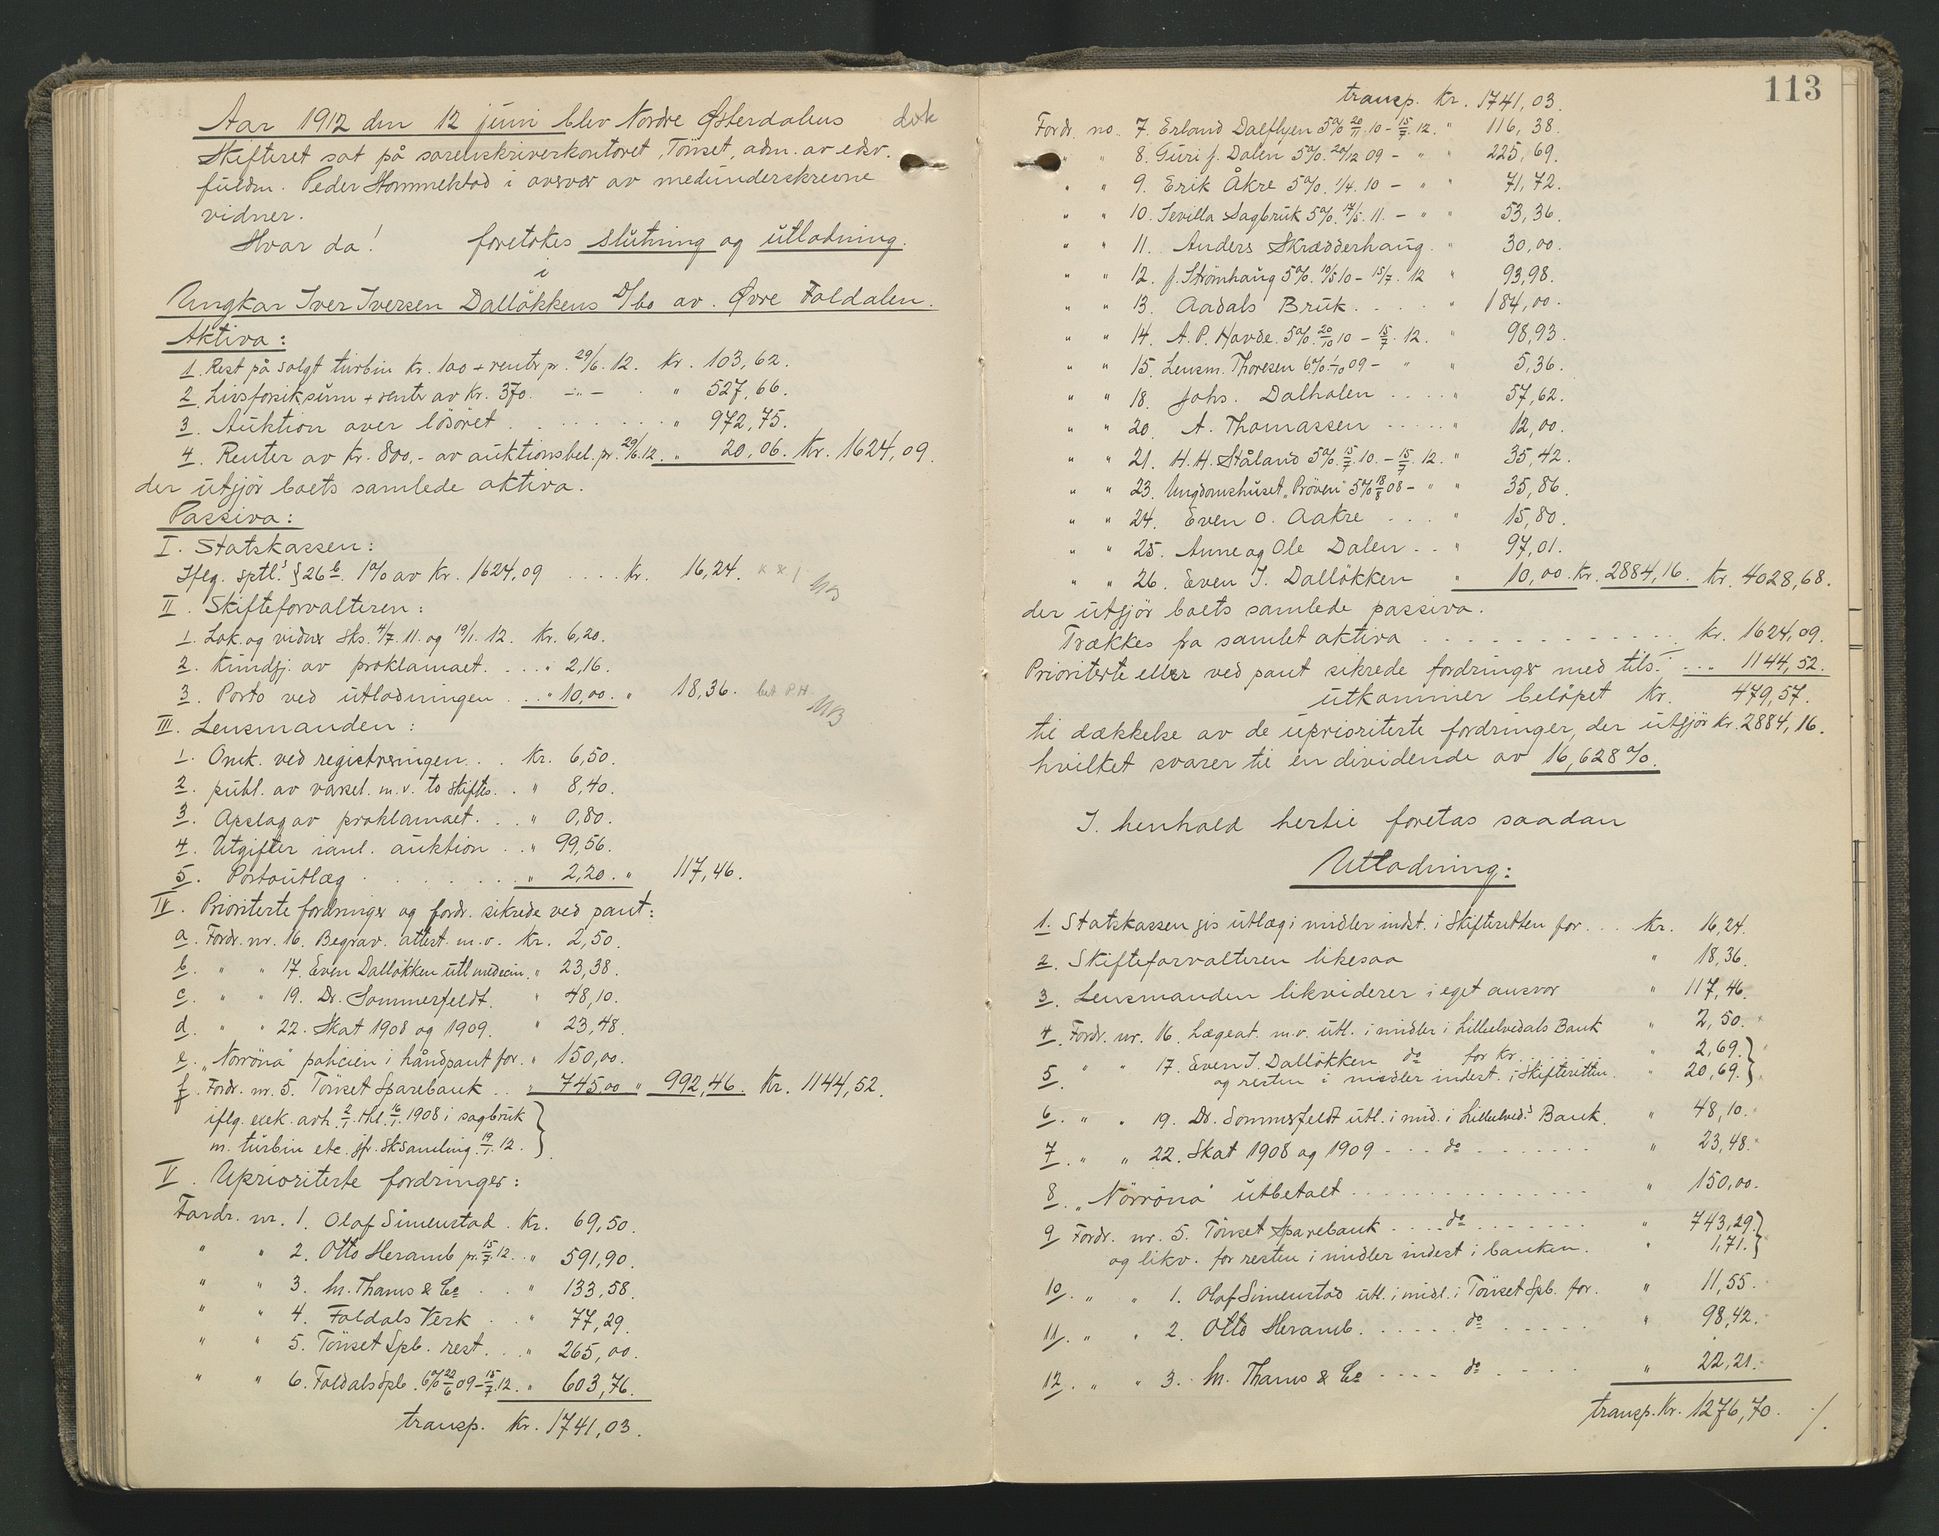 Aar 1912 den 12 juni blev Nordre Østerdalens
Skifteret sat på sorenskriverkontoret, Tönset, adm. av edsv.
fuldm. Peder Hommelstad i overvær av medunderskrevne
vidner.
Hvor da! foretokes slutning og utlodning
i
Ungkar Iver Iversen Dallökkens d/bo av Øvre Foldalen.
Aktiva:
1. Rest på solgt turbin kr. 100 + renter pr. 29/6. 12. kr. 103,62.
2. Livsforsik.sum + renter av kr. 370. -"- " 527,66.
3. Auktion over lösöret . . . . . . . " 972,75.
4. Renter av kr. 800,- av auktionsbel. pr. 29/6.12. " 20,06. Kr. 1624,09.
der utgjör boets samlede aktiva.
Passiva:
I. Statskassen:
Iflg. sptl.s § 26 b. 1% av kr. 1624,09 . . . . kr. 16,24.
II. Skifteforvalteren:
1. Lok. og vidner sks. 4/7. 11. og 19/1. 12. kr. 6,20.
2. Kundgj. av proklamaet. . . . " 2,16.
3. Porto ved utlodningen . . " 10,00. " 18,36. bet. P.H.
III. Lensmanden:
1. Omk. ved registreringen. . . kr. 6,50.
2. publ. av varsel. m.v. to skifts. . " 8,40.
3. Opslag av proklamaet. . . " 0,80.
4. Utgifter ianl. auktion . . " 99,56.
5. Portoutlæg . . . . . . . " 2,20. " 117,46.
IV. Prioriterte fordringer og fordr. sikrede ved pant:
a. Fordr. nr. 16. Begrav. attest. m.v. kr. 2,50.
b. " " 17. Even Dallökken utl medecin. " 23,38.
c. " " 19. Dr. Sommerfeldt. " 48,10.
d. " " 22. Skat 1908 og 1909. " 23,48.
e. "Norröna" policien i håndpant for. " 150,00.
f. Fordr. nr. 5. Tönset Sparebank . . " 745,00 " 992,46. Kr. 1144,52.
iflg. exek. avh. 2/1. thl. 16/1. 1908 i sagbruk
m. turbin etc. jfr. sksamling. 19/1. 12.
V. Uprioriterte fordringer:
Fordr. nr. 1. Olaf Simenstad . kr. 69,50.
" " 2. Otto Heramb pr. 15/7.12. . " 591,90.
" " 3. M. Thams & Co . . " 133,58.
" " 4. Foldals Verk . . " 77,29.
" " 5. Tönset Spb. rest. . . " 265,00.
" " 6. Foldals Spb. 6% 22/6 09 - 15/7. 12. " 603,76.
transp. kr. 1741,03.
113
transp. kr. 1741,03.
Fordr. no. 7. Erland Dalflyen 5% 20/11. 10 - 15/7. 12. " 116,38.
" " 8. Guri J. Dalen 5%. 24/12 09 - " " 225,69.
" " 9. Erik Åkre 5%. 1/4. 10 - " " 71,72.
" " 10. Sevilla Sagbruk 5%. 17/5. 11. - " " 53,36.
" " 11. Anders Skrædderhaug. " 30,00.
" " 12. J. Strömhaug 5%. 10/5 10 - 15/7. 12 " 93,98.
" " 13. Aadals Bruk. . . . " 184,00.
" " 14. A. P. Havde. 5%. 20/10 10 - 15/7. 12. " 98,93.
" " 15. Lensm. Thoresen 6%. 1/10 09 - " " 5,36.
" " 18. Johs. Dalholen . . . . " 57,62.
" " 20. A. Thomassen . . . . . " 12,00.
" " 21. H. H. Ståland 5%. 15/7. 10. - 15/7. 12. " 35,42.
" " 23. Ungdomshuset "Pröven" 5% 18/8 08 - " " 35,86.
" " 24. Even O. Aakre . . . " 15,80.
" " 25. Anne og Ole Dalen . . " 97,01.
" " 26. Even I. Dallökken " 10,00. kr. 2884,16. Kr. 4028,68.
der utgjör boets samlede passiva.
Trækkes fra samlet aktiva . . . . . . . . . . . . kr. 1624,09.
Prioriterte eller ved pant sikrede fordringer med tils. . . . 1144,52.
utkommer belöpet kr. 479,57.
til dækkelse av de uprioriterte fordringer, der utgjör kr. 2884,16.
hvilket svarer til en dividende av 16,628%.
I. henhold hertil foretas saadan
Utlodning:
1. Statskassen gis utlæg i midler indst. i Skifteretten for . . . kr. 16,24.
2. Skifteforvalteren likesaa " 18,36.
3. Lensmanden likviderer i eget ansvar " 117,46.
4. Fordr. nr. 16. Lægeat. m.v. utl. i midler i Lilleelvedals Bank " 2,50.
5. " " 17. Even I. Dallökken do for kr. " 2,69.
og resten i midler indest. i Skifteretten. " 20,69.
6. " " 19. Dr. Sommerfeldt utl. i mid. i Lilleelved.s Bank. " 48,10.
7. " " 22. Skat 1908 og 1909 - - - do - . . . . . . " 23,48.
8. "Norröna" utbetalt . . . . . . . . . . . . . " 150,00.
9. Fordr. nr. 5. Tönset Sparebank . . . . do . . . . . . . " 743,29.
og likv. for resten i midler indest i banken. " 1,71.
10. " " 1. Olaf Simenstad utl. i midl. i Tönset Spb. for. " 11,55.
11. " " 2. Otto Heramb. . . . . . do . . . . . " 98,42.
12. " " 3. M. Thams & Co . . . . do . . . . " 22,21.
transp. kr. 1276,70. ./.